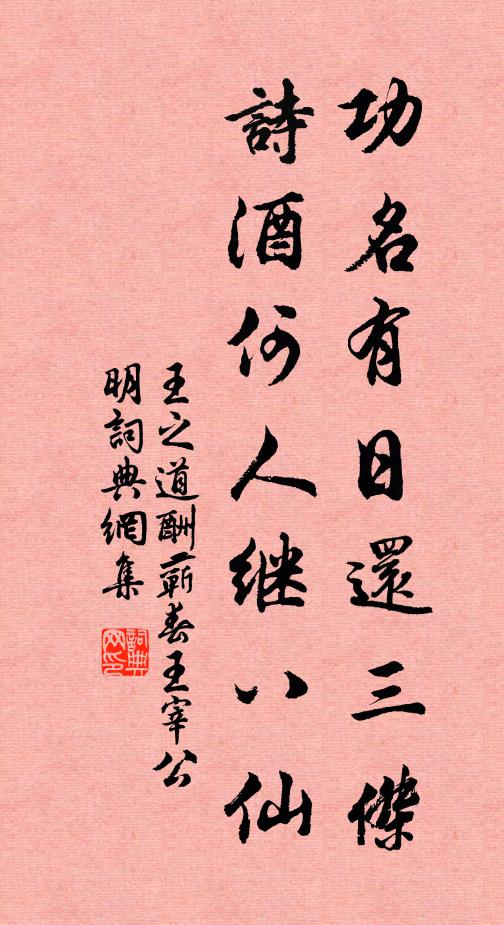 功名有日還三傑
詩酒何人继八仙
王之道酬蘄春王宰公
明詞典網集
詞典網印